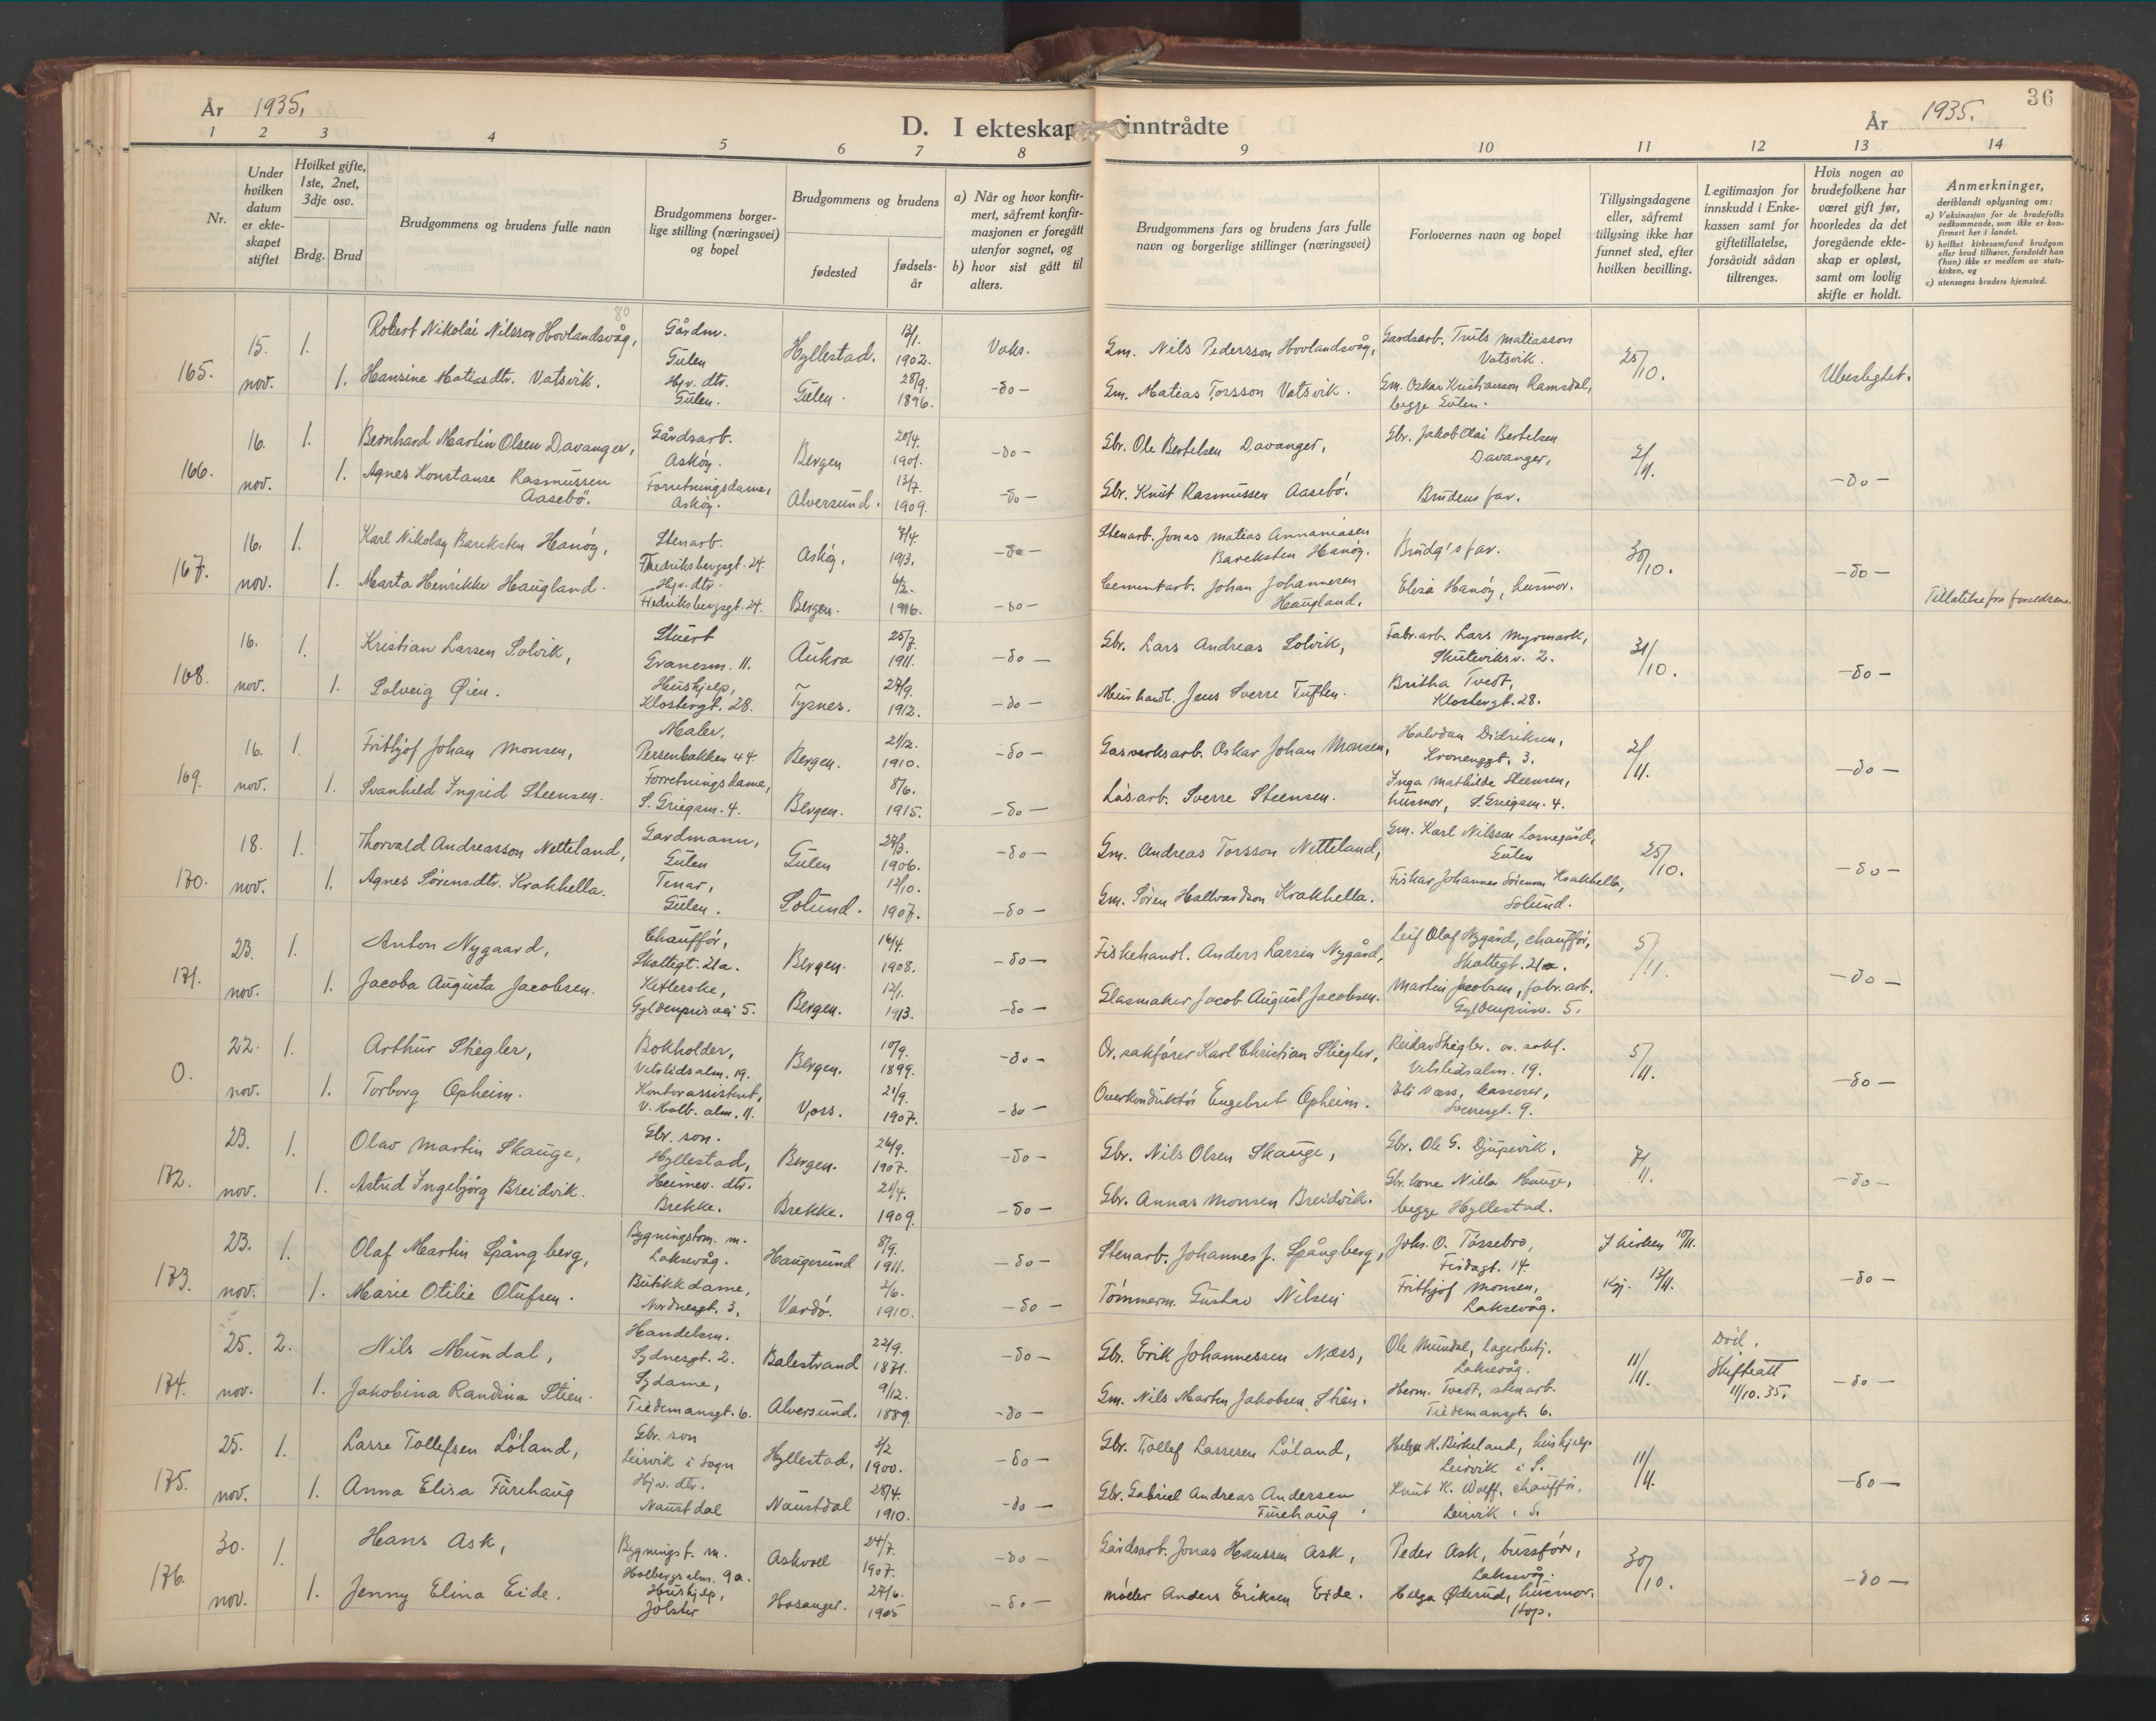 36
År 1935.
D. I ekteskap inntrådte
År 1935.
1 2 3 4 5 6 7 8 9 10 11 12 13 14
Nr.
Under hvilken datum er ekteskapet stiftet
Hvilket gifte, 1ste, 2net, 3dje osv.
Brdg. Brud
Brudgommens og brudens fulle navn
Brudgommens borgerlige stilling (næringsvei) og bopel
Brudgommens og brudens
fødested
fødselsår
a) Når og hvor konfirmert, såfremt konfirmasjonen er foregått utenfor sognet, og
b) hvor sist gått til alters.
Brudgommens fars og brudens fars fulle navn og borgerlige stillinger (næringsvei)
Forlovernes navn og bopel
Tillysingsdagene eller, såfremt tillysing ikke har funnet sted, efter hvilken bevilling.
Legitimasjon for innskudd i Enkekassen samt for giftetillatelse, forsåvidt sådan tiltrenges.
Hvis nogen av brudefolkene har været gift før, hvorledes da det foregående ekteskap er opløst, samt om lovlig skifte er holdt.
Anmerkninger, deriblandt oplysning om:
a) Vaksinasjon for de brudefolks vedkommende, som ikke er konfirmert her i landet.
b) hvilket kirkesamfund brudgom eller brud tilhører, forsåvidt han (hun) ikke er medlem av statskirken, og
c) utensogns bruders hjemsted.
80
165. 15. nov. 1. Robert Nikolai Nilsson Hovlandsvåg, Gårdm. Gulen Hyllestad. 13/1. 1902. Vaks. Gm. Nils Pedersson Hovlandsvåg, Gardsarb. Truls Matiasson Vatsvik. 25/10. Ubeslegtet.
1. Hansine Matiasdtr. Vatsvik. Hjv. dtr. Gulen. Gulen. 28/9. 1896. -do- Gm. Matias Torsson Vatsvik. Gm. Oskar Kristianson Ramsdal, begge Gulen.
166. 16. nov. 1. Bernhard Martin Olsen Davanger, Gårdsarb. Askøy. Bergen 20/4. 1901. -do- Gbr. Ole Bertelsen Davanger, Gbr. Jakob Olai Bertelsen Davanger, 2/11. -do-
1. Agnes Konstanse Rasmussen Aasebö. Forretningsdame, Askøy. Alversund. 13/7. 1909. -do- Gbr. Knut Rasmussen Aasebö. Brudens far.
167. 16. nov. 1. Karl Nikolay Bareksten Hanöy, Stenarb. Fredriksbergsgt. 24. Askøy, 7/4. 1913. -do- Stenarb. Jonas Matias Annaniasen Bareksten Hanöy. Brudg's far. 30/10. -do-
1. Marta Henrikke Haugland. Hjv. dtr. Fredriksbergsgt. 24. Bergen. 6/2. 1916. -do- Cementarb. Johan Johannesen Haugland. Elisa Hanöy, husmor. Tillatelse fra foreldrene.
168. 16. nov. 1. Kristian Larsen Solvik, Stuert Granesm. 11. Aukra 25/7. 1911. -do- Gbr. Lars Andreas Solvik, Fabr.arb. Lars Myrmark, Skuteviksv. 2. 31/10. -do-
1. Solveig Øien. Hushjelp, Klostergt. 28. Tysnes. 27/9. 1912. -do- Jens Sverre Tuften. Britha Tvedt, Klostergt. 28.
169. 16. nov. 1. Frithjof Johan Monsen, Maler, Persenbakken 44. Bergen. 21/12. 1910. -do- Gasverksarb. Oskar Johan Monsen, Halvdan Didriksen, 3. 2/11. -do-
1. Svanhild Ingrid Steensen. Forretningsdame, S. Griegsm. 4. Bergen. 8/6. 1915. -do- Låsarb. Sverre Steensen. Inga Mathilde Steensen, husmor, S. Griegsm. 4.
170. 18. nov. 1. Thorvald Andreasson Netteland, Gardmann, Gulen Gulen 27/3. 1906. -do- Gm. Andreas Torsson Netteland, Gm. Karl Nilsson Losnegård, Gulen 25/10. -do-
1. Agnes Sørensdtr. Krakhella. Tenar, Gulen. Solund. 12/10. 1907. -do- Gm. Søren Hallvardson Krakhella. Fiskar Johannes Sørenson Krakhella, Solund.
171. 23. nov. 1. Anton Nygaard, Chauffør, Skottegt. 21a. Bergen. 16/4. 1908. -do- Fiskehandl. Anders Larsen Nygård, Leif Olaf Nygård, chauffør, Skottegt. 21a. 5/11. -do-
1. Jacoba Augusta Jacobsen. Gyldenprisvei 5. Bergen. 12/1. 1913. -do- Glasmaker Jacob August Jacobsen. Marten Jacobsen, fabr. arb. Gyldenprisv. 5.
0. 22. nov. 1. Arthur Stiegler, Bokholder, Vetrlidsalm. 19. Bergen. 10/9. 1899. -do- Ov. sakfører Karl Christian Stiegler, Reidar Stiegler, ov. sakf. Vetrlidsalm. 19. 5/11. -do-
1. Torborg Opheim. Kontorassistent, V. Holb. alm. 11. Voss. 21/9. 1907. -do- Overkonduktör Engebret Opheim. Eli Næss, kasserer, Sverresgt. 9.
172. 23. nov. 1. Olav Martin Skauge, Gbr. son. Hyllestad, Bergen. 26/9. 1907. -do- Gbr. Nils Olsen Skauge, Gbr. Ole G. Djupevik, 7/11. -do-
1. Astrid Ingebjörg Breidvik. Heimev. dtr. Brekke. Brekke. 21/4. 1909. -do- Gbr. Annas Monsen Breidvik. Gbr. kone Nilla Hauge, begge Hyllestad.
173. 23. nov. 1. Olaf Martin Spångberg, Bygningstøm. m. Laksevåg. Haugesund 8/9. 1911. -do- Stenarb. Johannes J. Spångberg, Johs. O. Tössebro, Fisdagt. 14. I kirken 10/11. -do-
1. Marie Otilie Olufsen. Butikkdame, Nordnesgt. 3. Vardö. 2/6. 1910. -do- Tömmerm. Gustav Nilsen Frithjof Monsen, Laksevåg. Kgj. 12/11.
174. 25. nov. 2. Nils Mundal, Handelsm. Sydnesgt. 2. Balestrand 22/9. 1871. -do- Gbr. Erik Johannessen Næss, Ole Mundal, lagerbetj. Laksevåg. 11/11. Död. Skifteatt 11/10. 35. -do-
1. Jakobina Randina Stien. Sydame, Tiedemansgt. 6. Alversund. 9/12. 1889. -do- Gm. Nils Martin Jakobsen Stien. Herm. Tvedt, stenarb. Tiedemansgt. 6.
175. 25. nov. 1. Lasse Tollefsen Löland, Gbr. son Leirvik i Sogn Hyllestad, 2/2 1900. -do- Gbr. Tollef Lassesen Löland, Helga K. Birkeland, hushjelp Leirvik i S. 11/11. -do-
1. Anna Elisa Furehaug Hjv. dtr. Naustdal Naustdal 28/4. 1910. -do- Gbr. Gabriel Andreas Andersen Furehaug Knut K. Wolff, chauffør, Leirvik i S.
176. 30. nov. 1. Hans Ask, Bygningst. m. Holbergsalm. 9a. Askvoll 24/7. 1907. -do- Gårdsarb. Jonas Hanssen Ask, Peder Ask, bussför, Laksevåg. 30/10. -do-
1. Jenny Elina Eide. Hushjelp, Jölster Hosanger. 27/6. 1905 -do- Möller Anders Eriksen Eide. Helga Øderud, husmor. Hop.